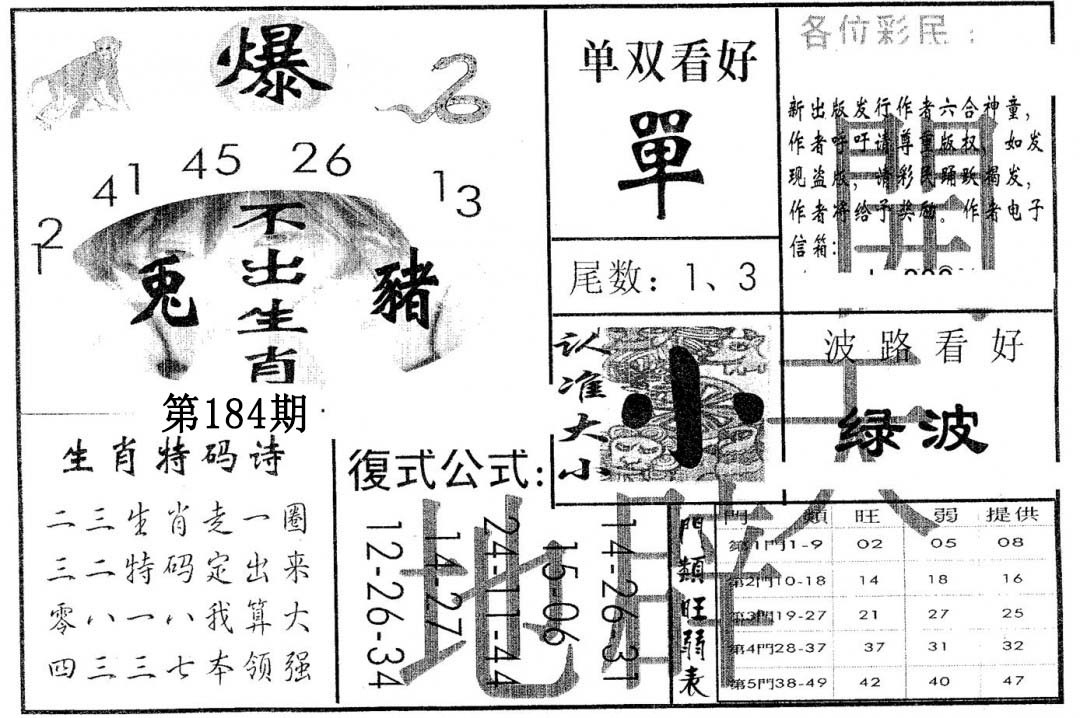 爆
12
41
45
26
13
兔
不出生肖
豬
第184期
生肖特码诗
二三生肖走一圈
三二特码定出来
零八一八我算大
四三三七本领强
单双看好
單
尾数：1、3
认准大小
小
各位彩民：
新出版发行作者六合神童，
作者呼吁请尊重版权，如发
现盗版，请彩民踊跃揭发，
作者将给予奖励。作者电子
信箱：
波路看好
绿波
復式公式：
12-26-34
14-27
24-11-44
15-06
14-26-31
門類旺弱表
門類 旺 弱 提供
第1門1-9 02 05 08
第2門10-18 14 18 16
第3門19-27 21 27 25
第4門28-37 37 31 32
第5門38-49 42 40 47